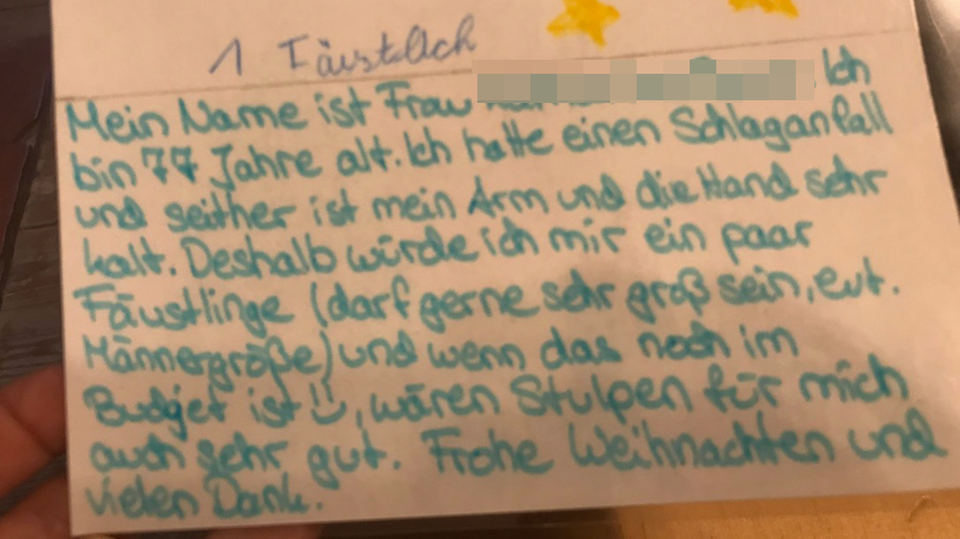 1 Fäustlich
Mein Name ist Frau Ich
bin 77 Jahre alt. Ich hatte einen Schlaganfall
und seither ist mein Arm und die Hand sehr
kalt. Deshalb würde ich mir ein paar
Fäustlinge (darf gerne sehr groß sein, evt.
Männergröße) und wenn das noch im
Budget ist :), wären Stulpen für mich
auch sehr gut. Frohe Weihnachten und
vielen Dank.